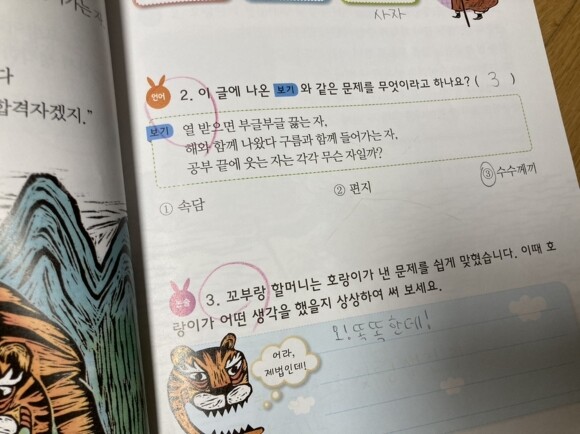 사자
다
합격자겠지."
언어 2. 이 글에 나온 보기 와 같은 문제를 무엇이라고 하나요? ( 3 )
보기 열 받으면 부글부글 끓는 자,
해와 함께 나왔다 구름과 함께 들어가는 자,
공부 끝에 웃는 자는 각각 무슨 자일까?
① 속담 ② 편지 ③ 수수께끼
논술 3. 꼬부랑 할머니는 호랑이가 낸 문제를 쉽게 맞혔습니다. 이때 호
랑이가 어떤 생각을 했을지 상상하여 써 보세요.
오! 똑똑한데!
어라,
제법인데!